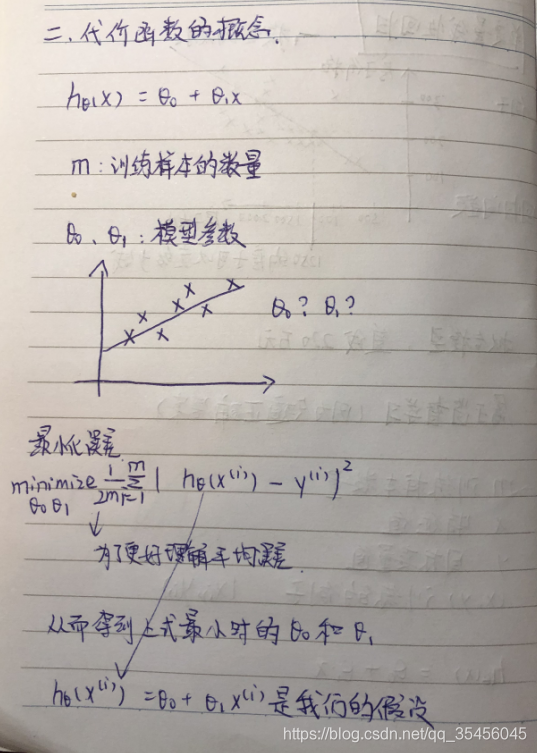 二、代价函数的概念.
hθ(x) = θ0 + θ1x
m:训练样本的数量
θ0、θ1:模型参数
θ0? θ1?
最小化误差
minimize 1/2m ∑ i=1 m ( hθ(x(i)) - y(i) )²
θ0 θ1
为了更好理解平均误差.
从而得到上式最小时的 θ0 和 θ1
hθ(x(i)) = θ0 + θ1 x(i) 是我们的假设
https://blog.csdn.net/qq_35456045